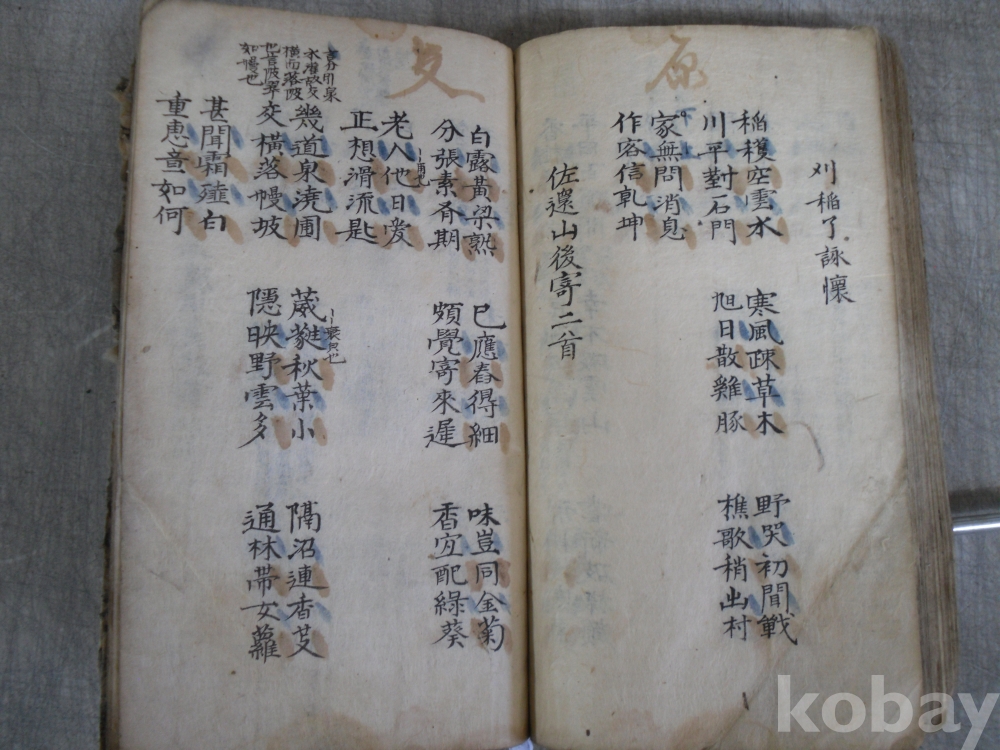 原
刈稻了詠懷
稻穫空雲水
川平對石門
寒風疎草木
旭日散雞豚
野哭初聞戰
樵歌稍出村
家無問消息
下
上
作客信乾坤
佐還山後寄二首
支
白露黃粱熟
分張素有期
已應舂得細
頗覺寄來遲
味豈同金菊
香宜配綠葵
老人他日愛
正想滑流匙
幾道泉澆圃
交橫落幔坡
言分用泉
水灌故交
橫而落陂
也言陂翠
如幔也
葳蕤秋葉小
隱映野雲多
隔沼連香芰
通林帶女蘿
甚聞霜薤白
重惠意如何
kobay